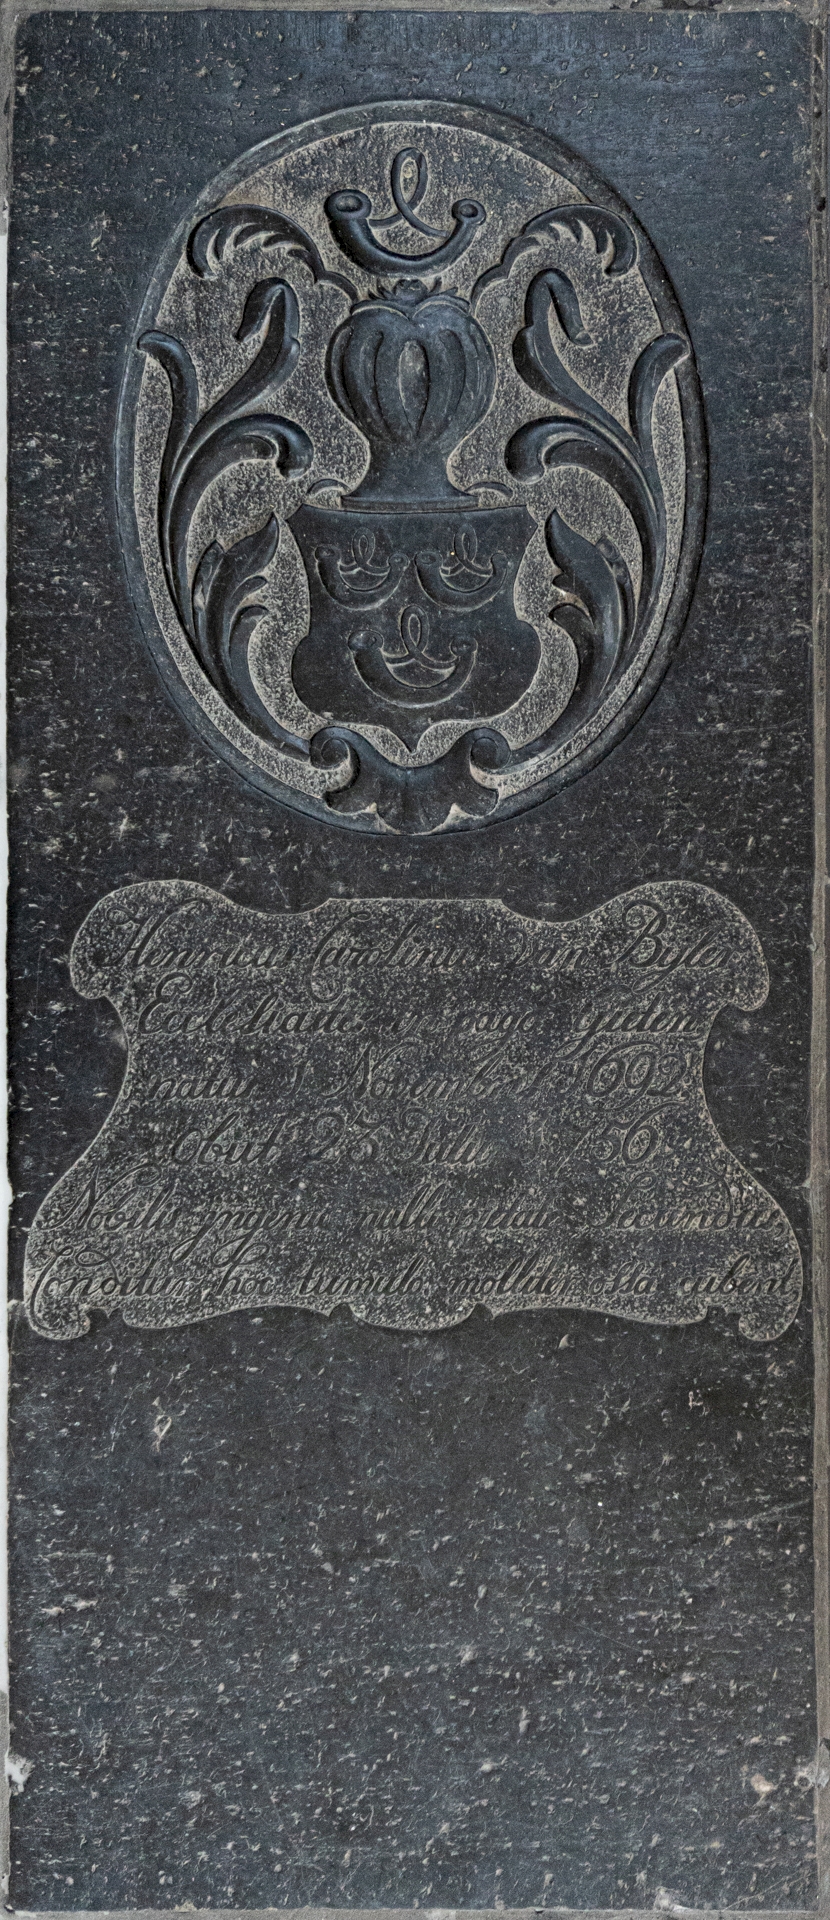 Henricus Carolinus van Byler
Ecclesiastes in pago gieten
natus 1 Novembris 1692
obiit 23 Julii 1756
Nobilis yngenio nulli pietate Secundus
Conditur hoc tumulo molliter ossa cubent